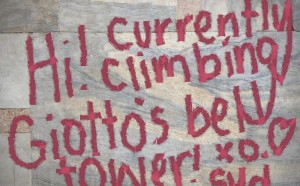 Hi! currently
climbing
Giotto's bell
tower! xo.♡
syd